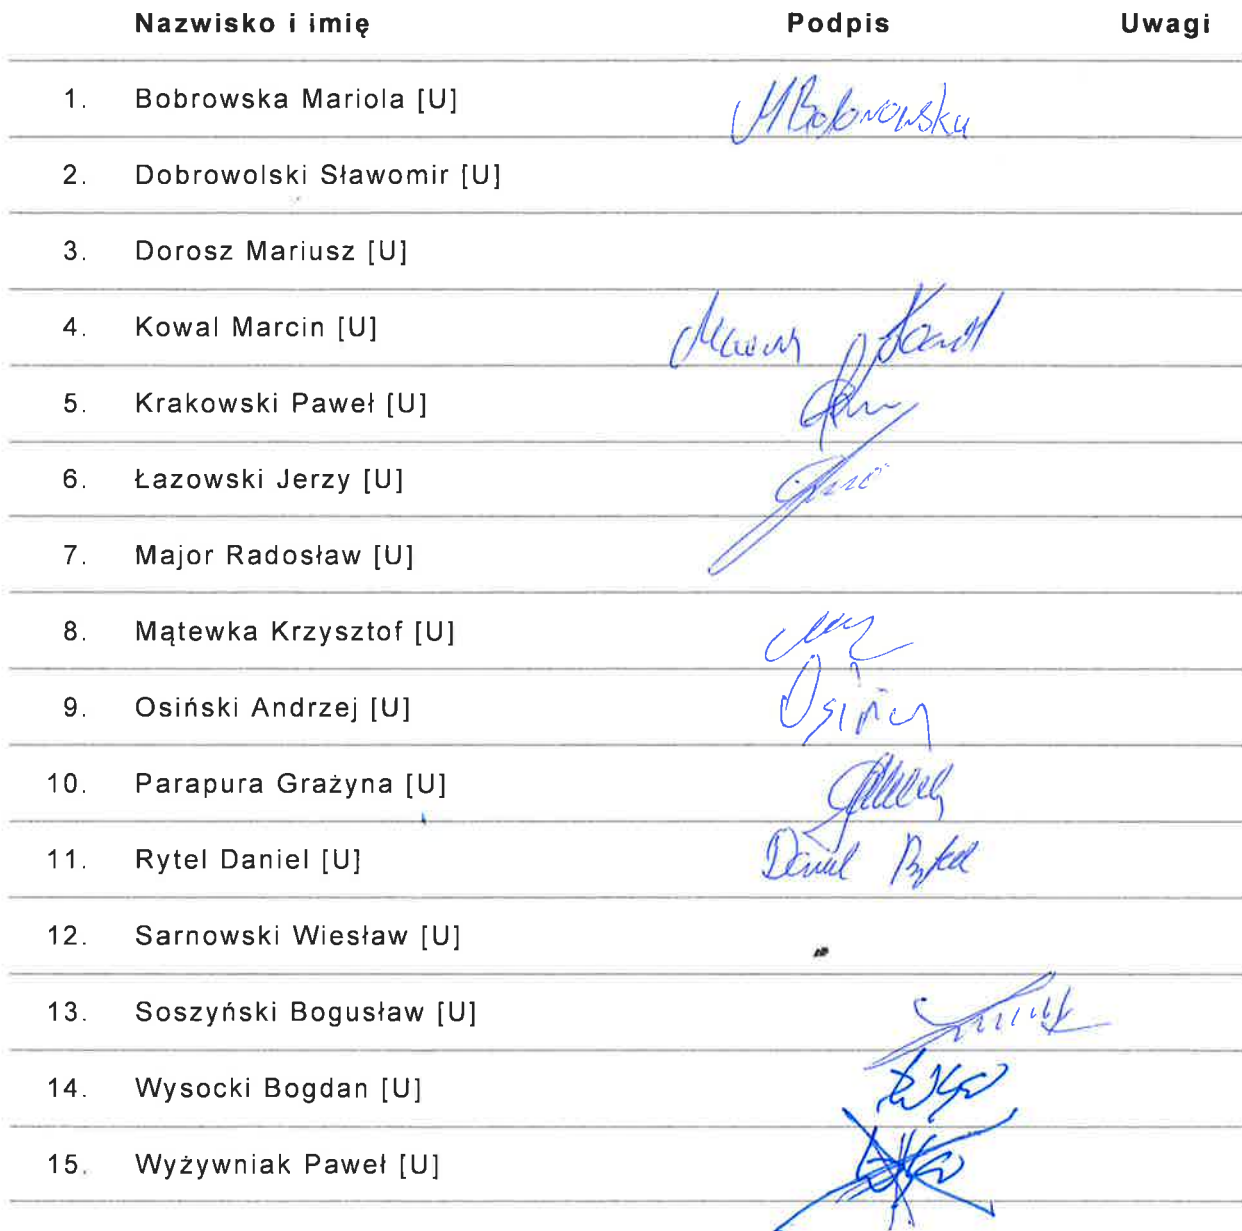 Nazwisko i imię Podpis Uwagi
1. Bobrowska Mariola [U] MBobrowska
2. Dobrowolski Sławomir [U]
3. Dorosz Mariusz [U]
4. Kowal Marcin [U] Marcin Kowal
5. Krakowski Paweł [U]
6. Łazowski Jerzy [U]
7. Major Radosław [U]
8. Mątewka Krzysztof [U]
9. Osiński Andrzej [U]
10. Parapura Grażyna [U]
11. Rytel Daniel [U] Daniel Rytel
12. Sarnowski Wiesław [U]
13. Soszyński Bogusław [U]
14. Wysocki Bogdan [U]
15. Wyżywniak Paweł [U]